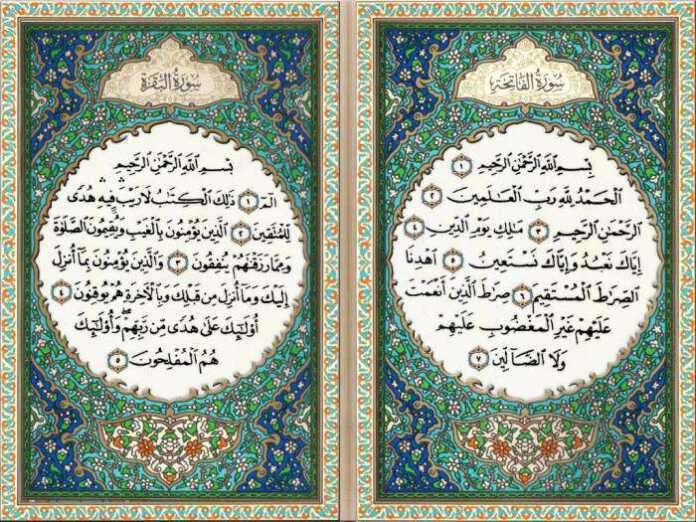 سُورَةُ الفَاتِحَة
بِسْمِ اللَّهِ الرَّحْمَٰنِ الرَّحِيمِ ١
الْحَمْدُ لِلَّهِ رَبِّ الْعَالَمِينَ ٢
الرَّحْمَٰنِ الرَّحِيمِ ٣ مَالِكِ يَوْمِ الدِّينِ ٤
إِيَّاكَ نَعْبُدُ وَإِيَّاكَ نَسْتَعِينُ ٥ اهْدِنَا
الصِّرَاطَ الْمُسْتَقِيمَ ٦ صِرَاطَ الَّذِينَ أَنْعَمْتَ
عَلَيْهِمْ غَيْرِ الْمَغْضُوبِ عَلَيْهِمْ
وَلَا الضَّالِّينَ ٧
سُورَةُ البَقَرَة
بِسْمِ اللَّهِ الرَّحْمَٰنِ الرَّحِيمِ
الٓمٓ ١ ذَٰلِكَ الْكِتَابُ لَا رَيْبَ فِيهِ هُدًى
لِلْمُتَّقِينَ ٢ الَّذِينَ يُؤْمِنُونَ بِالْغَيْبِ وَيُقِيمُونَ الصَّلَوٰةَ
وَمِمَّا رَزَقْنَاهُمْ يُنْفِقُونَ ٣ وَالَّذِينَ يُؤْمِنُونَ بِمَا أُنْزِلَ
إِلَيْكَ وَمَا أُنْزِلَ مِنْ قَبْلِكَ وَبِالْآخِرَةِ هُمْ يُوقِنُونَ ٤
أُولَٰئِكَ عَلَىٰ هُدًى مِنْ رَبِّهِمْ ۖ وَأُولَٰئِكَ
هُمُ الْمُفْلِحُونَ ٥